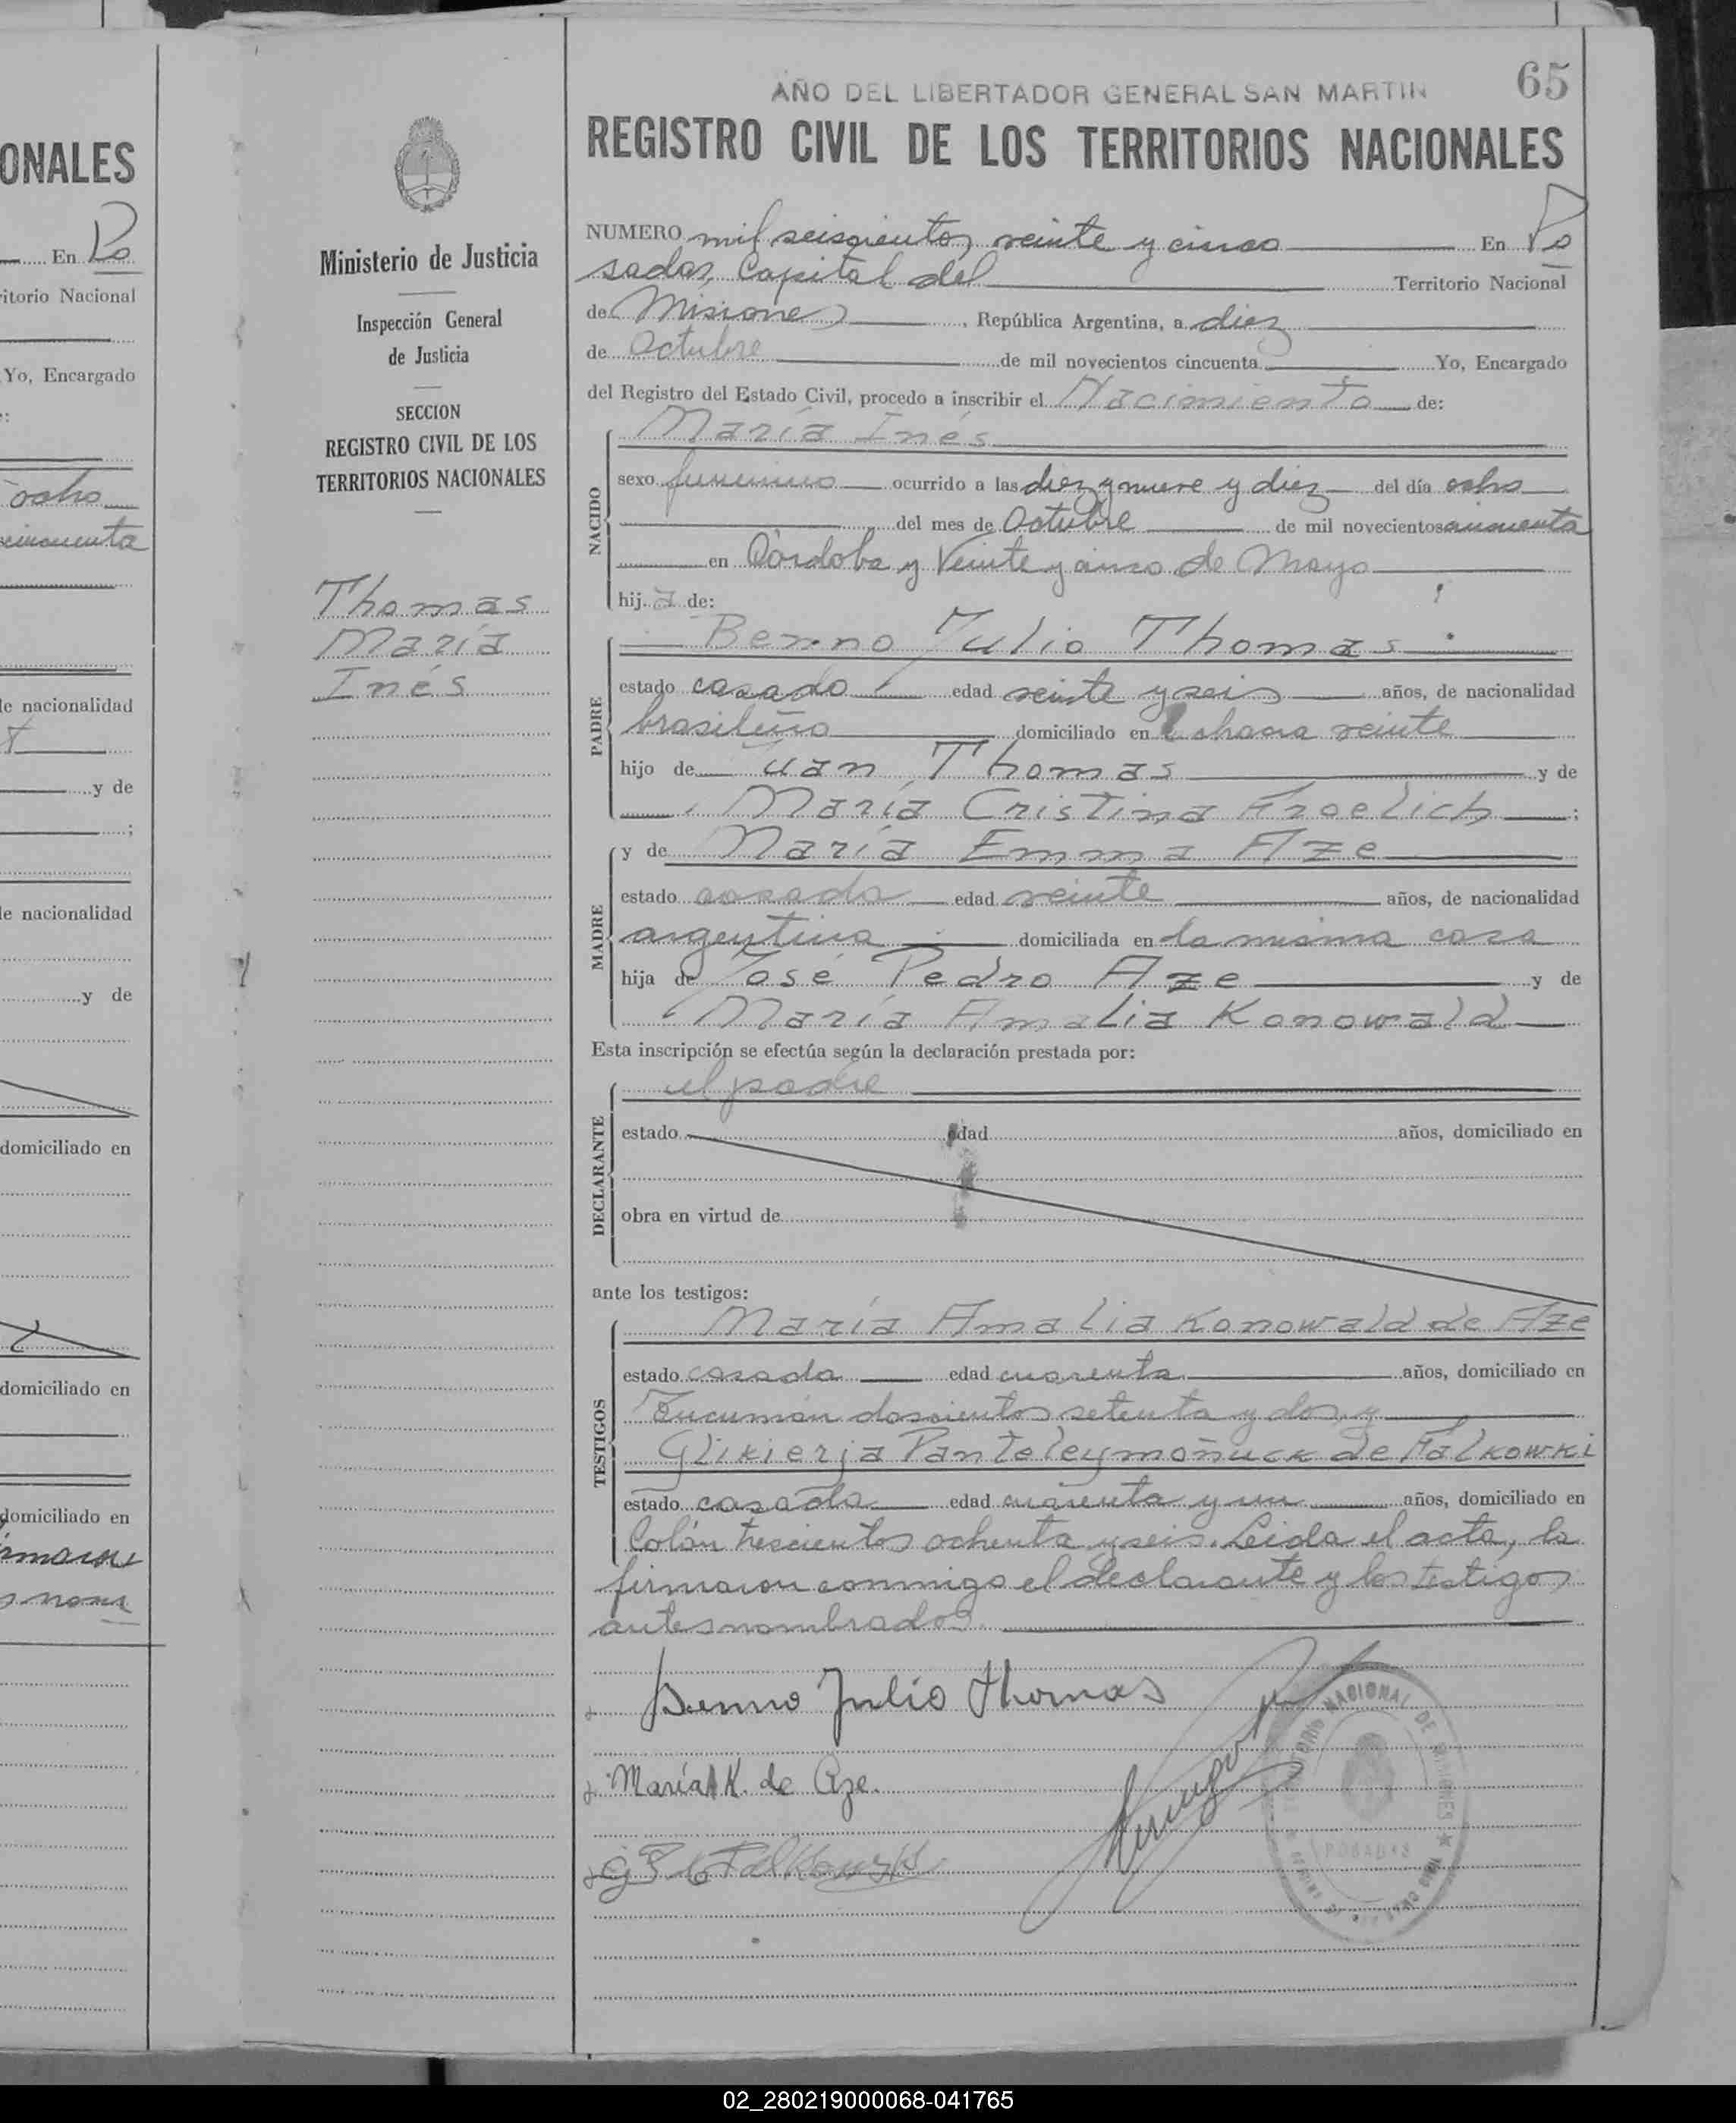 ONALES
En Po
itorio Nacional
Yo, Encargado
ocho
cincuenta
de nacionalidad
y de
de nacionalidad
y de
domiciliado en
domiciliado en
domiciliado en
Ministerio de Justicia
Inspección General
de Justicia
SECCION
REGISTRO CIVIL DE LOS
TERRITORIOS NACIONALES
Thomas
María
Inés
AÑO DEL LIBERTADOR GENERAL SAN MARTIN
65
REGISTRO CIVIL DE LOS TERRITORIOS NACIONALES
NUMERO mil seiscientos veinte y cinco En Po
sadas, Capital del Territorio Nacional
de Misiones, República Argentina, a diez
de Octubre de mil novecientos cincuenta Yo, Encargado
del Registro del Estado Civil, procedo a inscribir el Nacimiento de:
María Inés
NACIDO
sexo femenino ocurrido a las diez y nueve y diez del día ocho
del mes de Octubre de mil novecientos cincuenta
en Córdoba y Veinte y cinco de Mayo
hija de:
Benno Julio Thomas
PADRE
estado casado edad veinte y seis años, de nacionalidad
brasileño domiciliado en chacra veinte
hijo de Juan Thomas y de
María Cristina Froelich;
MADRE
y de María Emma Aze
estado casada edad veinte años, de nacionalidad
argentina domiciliada en la misma casa
hija de José Pedro Aze y de
María Amalia Konowald
Esta inscripción se efectúa según la declaración prestada por:
el padre
DECLARANTE
estado edad años, domiciliado en
obra en virtud de
ante los testigos:
María Amalia Konowald de Aze
TESTIGOS
estado casada edad cuarenta años, domiciliado en
Tucumán doscientos setenta y dos, y
Glikierja Panteleymoñuck de Falkowki
estado casada edad cuarenta y un años, domiciliado en
Colón trescientos ochenta y seis. Leida el acta, la
firmaron conmigo el declarante y los testigos
antes nombrados.
Benno Julio Thomas
María K. de Aze.
TERRITORIO NACIONAL DE MISIONES
POSADAS
02_280219000068-041765